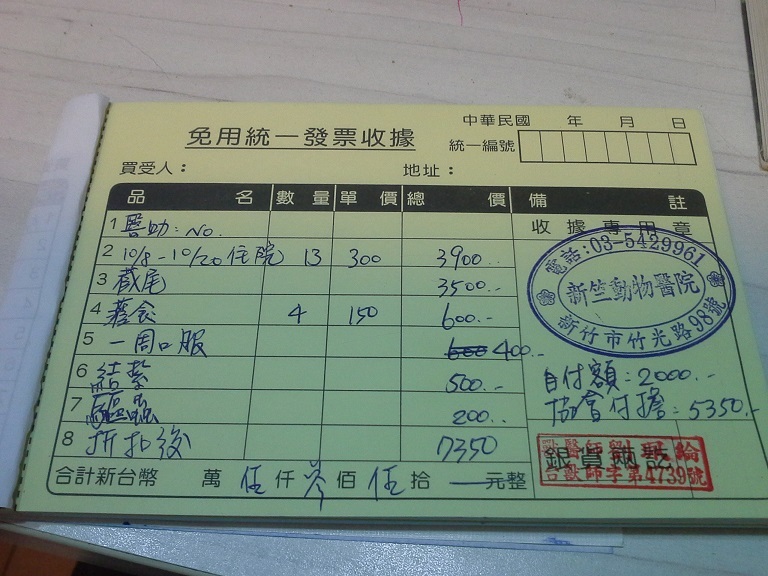 中華民國 年 月 日
免用統一發票收據
統一編號
買受人： 地址：
品名 數量 單價 總價 備註
1 醫助：No.
收據專用章
2 10/8-10/20住院 13 300 3900.-
3 截尾 3500.-
4 蔘食 4 150 600.-
5 一周口服 600 400.-
6 結紮 500.-
7 驅蟲 200.-
8 折扣後 7350
電話:03-5429961
新竺動物醫院
新竹市竹光路98號
自付額：2000.-
協會付擔：5350.-
銀貨兩訖
獸醫師劉
師字第4739號
合計新台幣 萬 伍仟參佰伍拾 元整